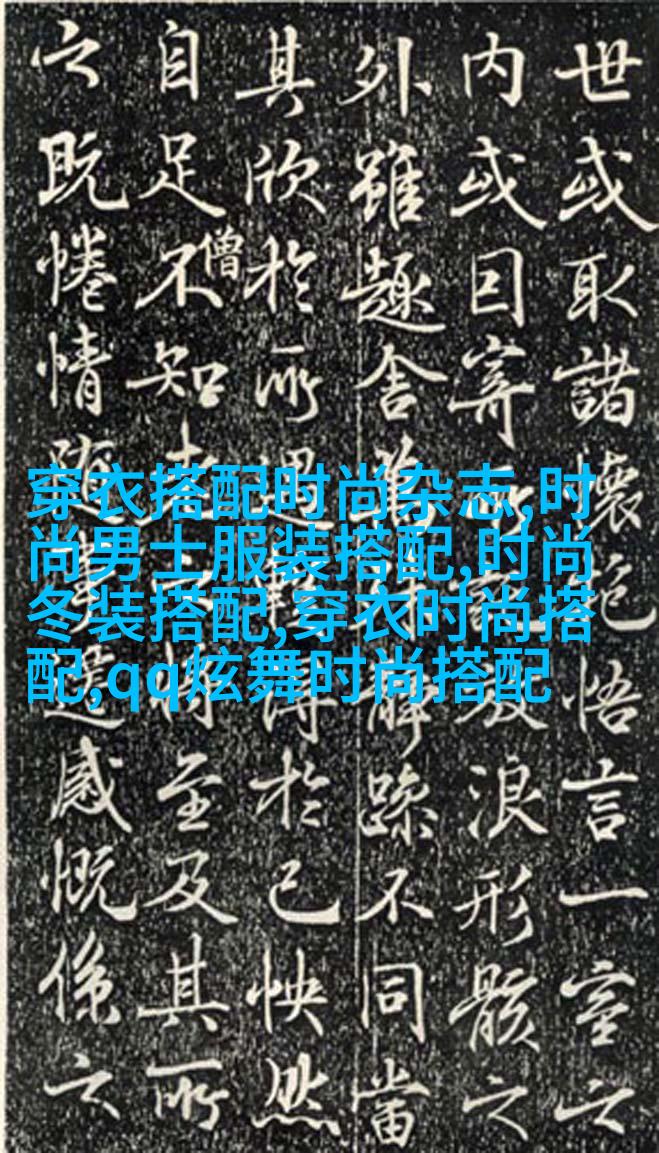 世或取諸懷抱悟言一室之
内或因寄所託放浪形骸之
外雖趣舍萬殊靜躁不同當
其欣於所遇蹔得於己怏然
自足不知老之將至及其所
僧
之既惓情隨事遷感慨係之
穿衣搭配时尚杂志,时
尚男士服装搭配,时尚
冬装搭配,穿衣时尚搭
配,qq炫舞时尚搭配